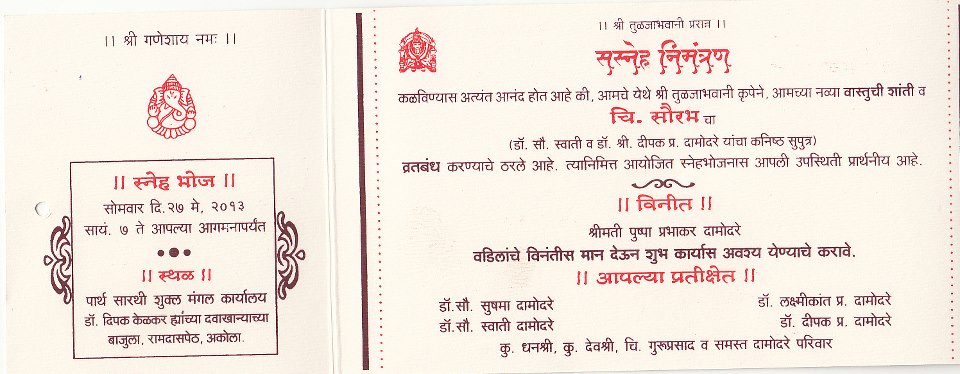 ।। श्री गणेशाय नमः ।।
।। स्नेह भोज ।।
सोमवार दि.२७ मे, २०१३
सायं. ७ ते आपल्या आगमनापर्यंत
।। स्थळ ।।
पार्थ सारथी शुक्ल मंगल कार्यालय
डॉ. दिपक केळकर ह्यांच्या दवाखान्याच्या
बाजुला, रामदासपेठ, अकोला.
।। श्री तुळजाभवानी प्रसन्न ।।
सस्नेह निमंत्रण
कळविण्यास अत्यंत आनंद होत आहे की, आमचे येथे श्री तुळजाभवानी कृपेने, आमच्या नव्या वास्तुची शांती व
चि. सौरभ चा
(डॉ. सौ. स्वाती व डॉ. श्री. दीपक प्र. दामोदरे यांचा कनिष्ठ सुपुत्र)
व्रतबंध करण्याचे ठरले आहे. त्यानिमित्त आयोजित स्नेहभोजनास आपली उपस्थिती प्रार्थनीय आहे.
।। विनीत ।।
श्रीमती पुष्पा प्रभाकर दामोदरे
वडिलांचे विनंतीस मान देऊन शुभ कार्यास अवश्य येण्याचे करावे.
।। आपल्या प्रतीक्षेत ।।
डॉ.सौ. सुषमा दामोदरे डॉ. लक्ष्मीकांत प्र. दामोदरे
डॉ.सौ. स्वाती दामोदरे डॉ. दीपक प्र. दामोदरे
कु. धनश्री, कु. देवश्री, चि. गुरूप्रसाद व समस्त दामोदरे परिवार